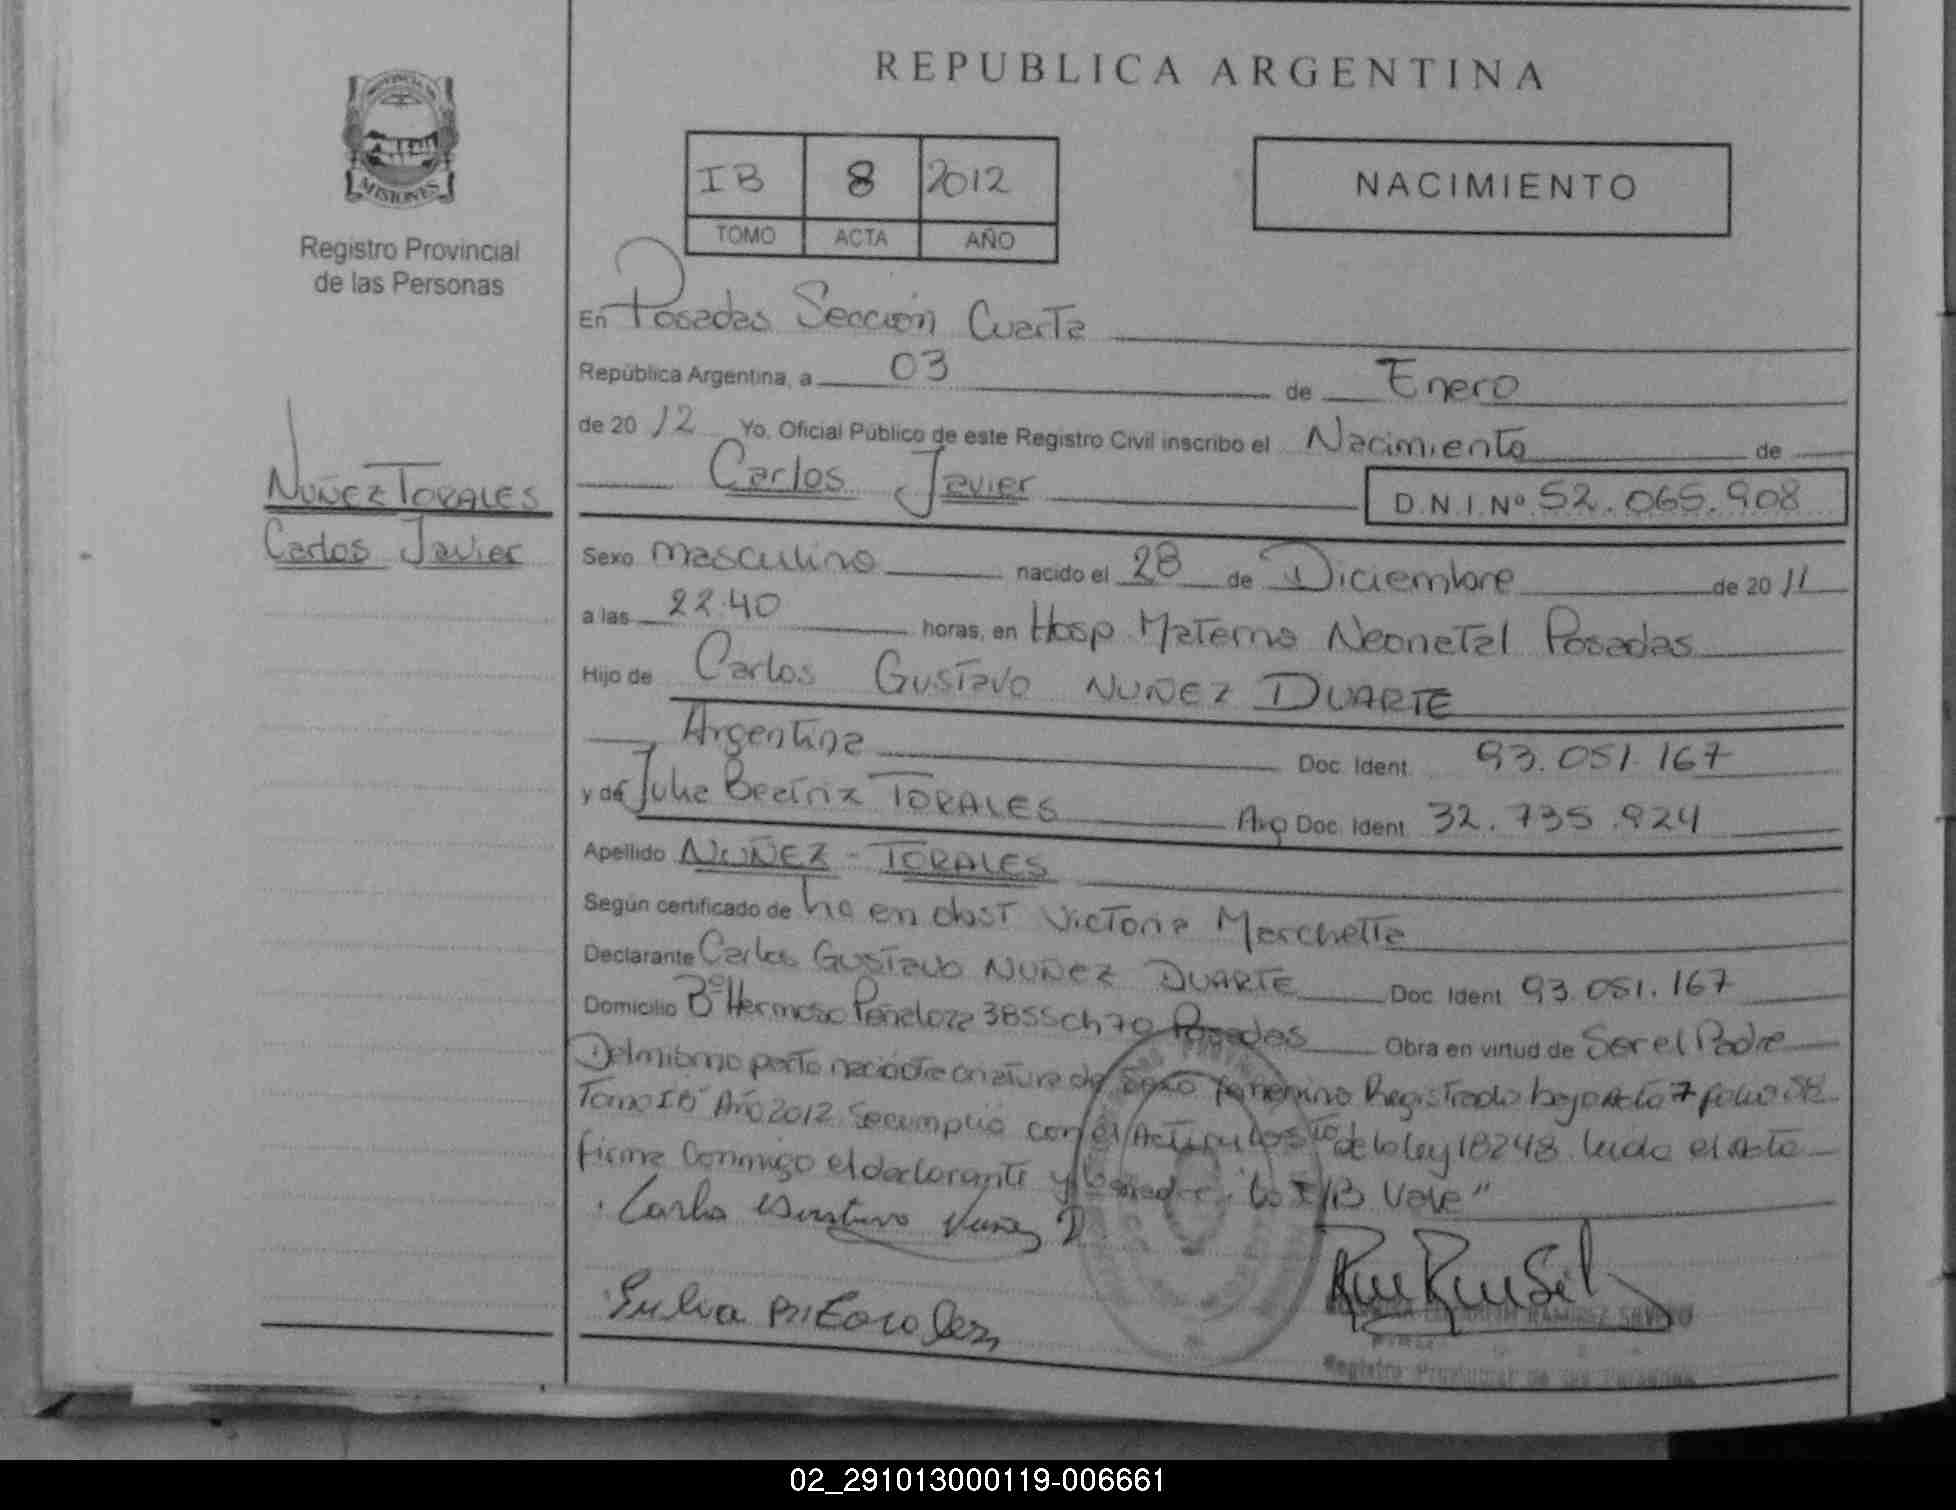 REPUBLICA ARGENTINA
MISIONES
Registro Provincial
de las Personas
IB 8 2012
TOMO ACTA AÑO
NACIMIENTO
En Posadas Sección Cuarta
República Argentina, a 03 de Enero
de 2012 Yo, Oficial Público de este Registro Civil inscribo el Nacimiento de
Carlos Javier
D.N.I. Nº 52.065.908
NUÑEZ TORALES
Carlos Javier
Sexo masculino nacido el 28 de Diciembre de 2011
a las 22:40 horas, en Hosp Materno Neonatal Posadas
Hijo de Carlos Gustavo NUÑEZ DUARTE
Argentina Doc. Ident. 93.051.167
y de Julia Beatriz TORALES Arg Doc. Ident. 32.735.924
Apellido NUÑEZ - TORALES
Según certificado de Lic en obst Victoria Marchetta
Declarante Carlos Gustavo NUÑEZ DUARTE Doc. Ident. 93.051.167
Domicilio Bº Hermoso Peñaloza 3855 Ch 70 Posadas Obra en virtud de Ser el Padre
Del mismo parto nació otra criatura de sexo femenino Registrada bajo Acta 7 folio 58
Tomo IB Año 2012 Se cumplió con el Artículos 10 de la ley 18248 leída el acta
firma Conmigo el declarante y la madre. "Lo I/B Vale"
Carlos Gustavo Nuñez D
Registro Provincial de las Personas
02_291013000119-006661